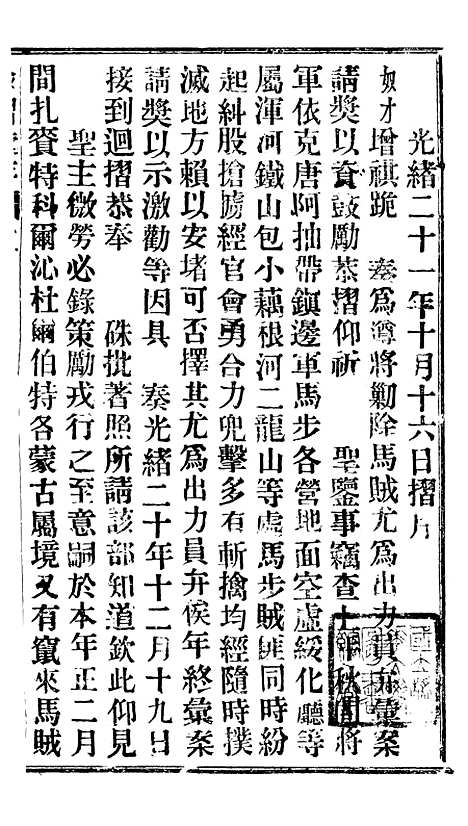 光緒二十一年十月十六日摺片
奴才增祺跪　奏爲遵將剿除馬賊尤爲出力員弁彙案
請獎以資鼓勵恭摺仰祈　聖鑒事竊查上年秋間將
軍依克唐阿抽帶鎮邊軍馬步各營地面空虛綏化廳等
屬渾河鐵山包小藕根河二龍山等處馬步賊匪同時紛
起糾股搶掳經官會勇合力兜擊多有斬擒均經隨時撲
滅地方賴以安堵可否擇其尤爲出力員弁候年終彙案
請獎以示激勸等因具　奏光緒二十年十二月十九日
接到迴摺恭奉　硃批著照所請該部知道欽此仰見
聖主微勞必錄策勵戎行之至意嗣於本年正二月
間扎賚特科爾沁杜爾伯特各蒙古屬境又有竄來馬賊